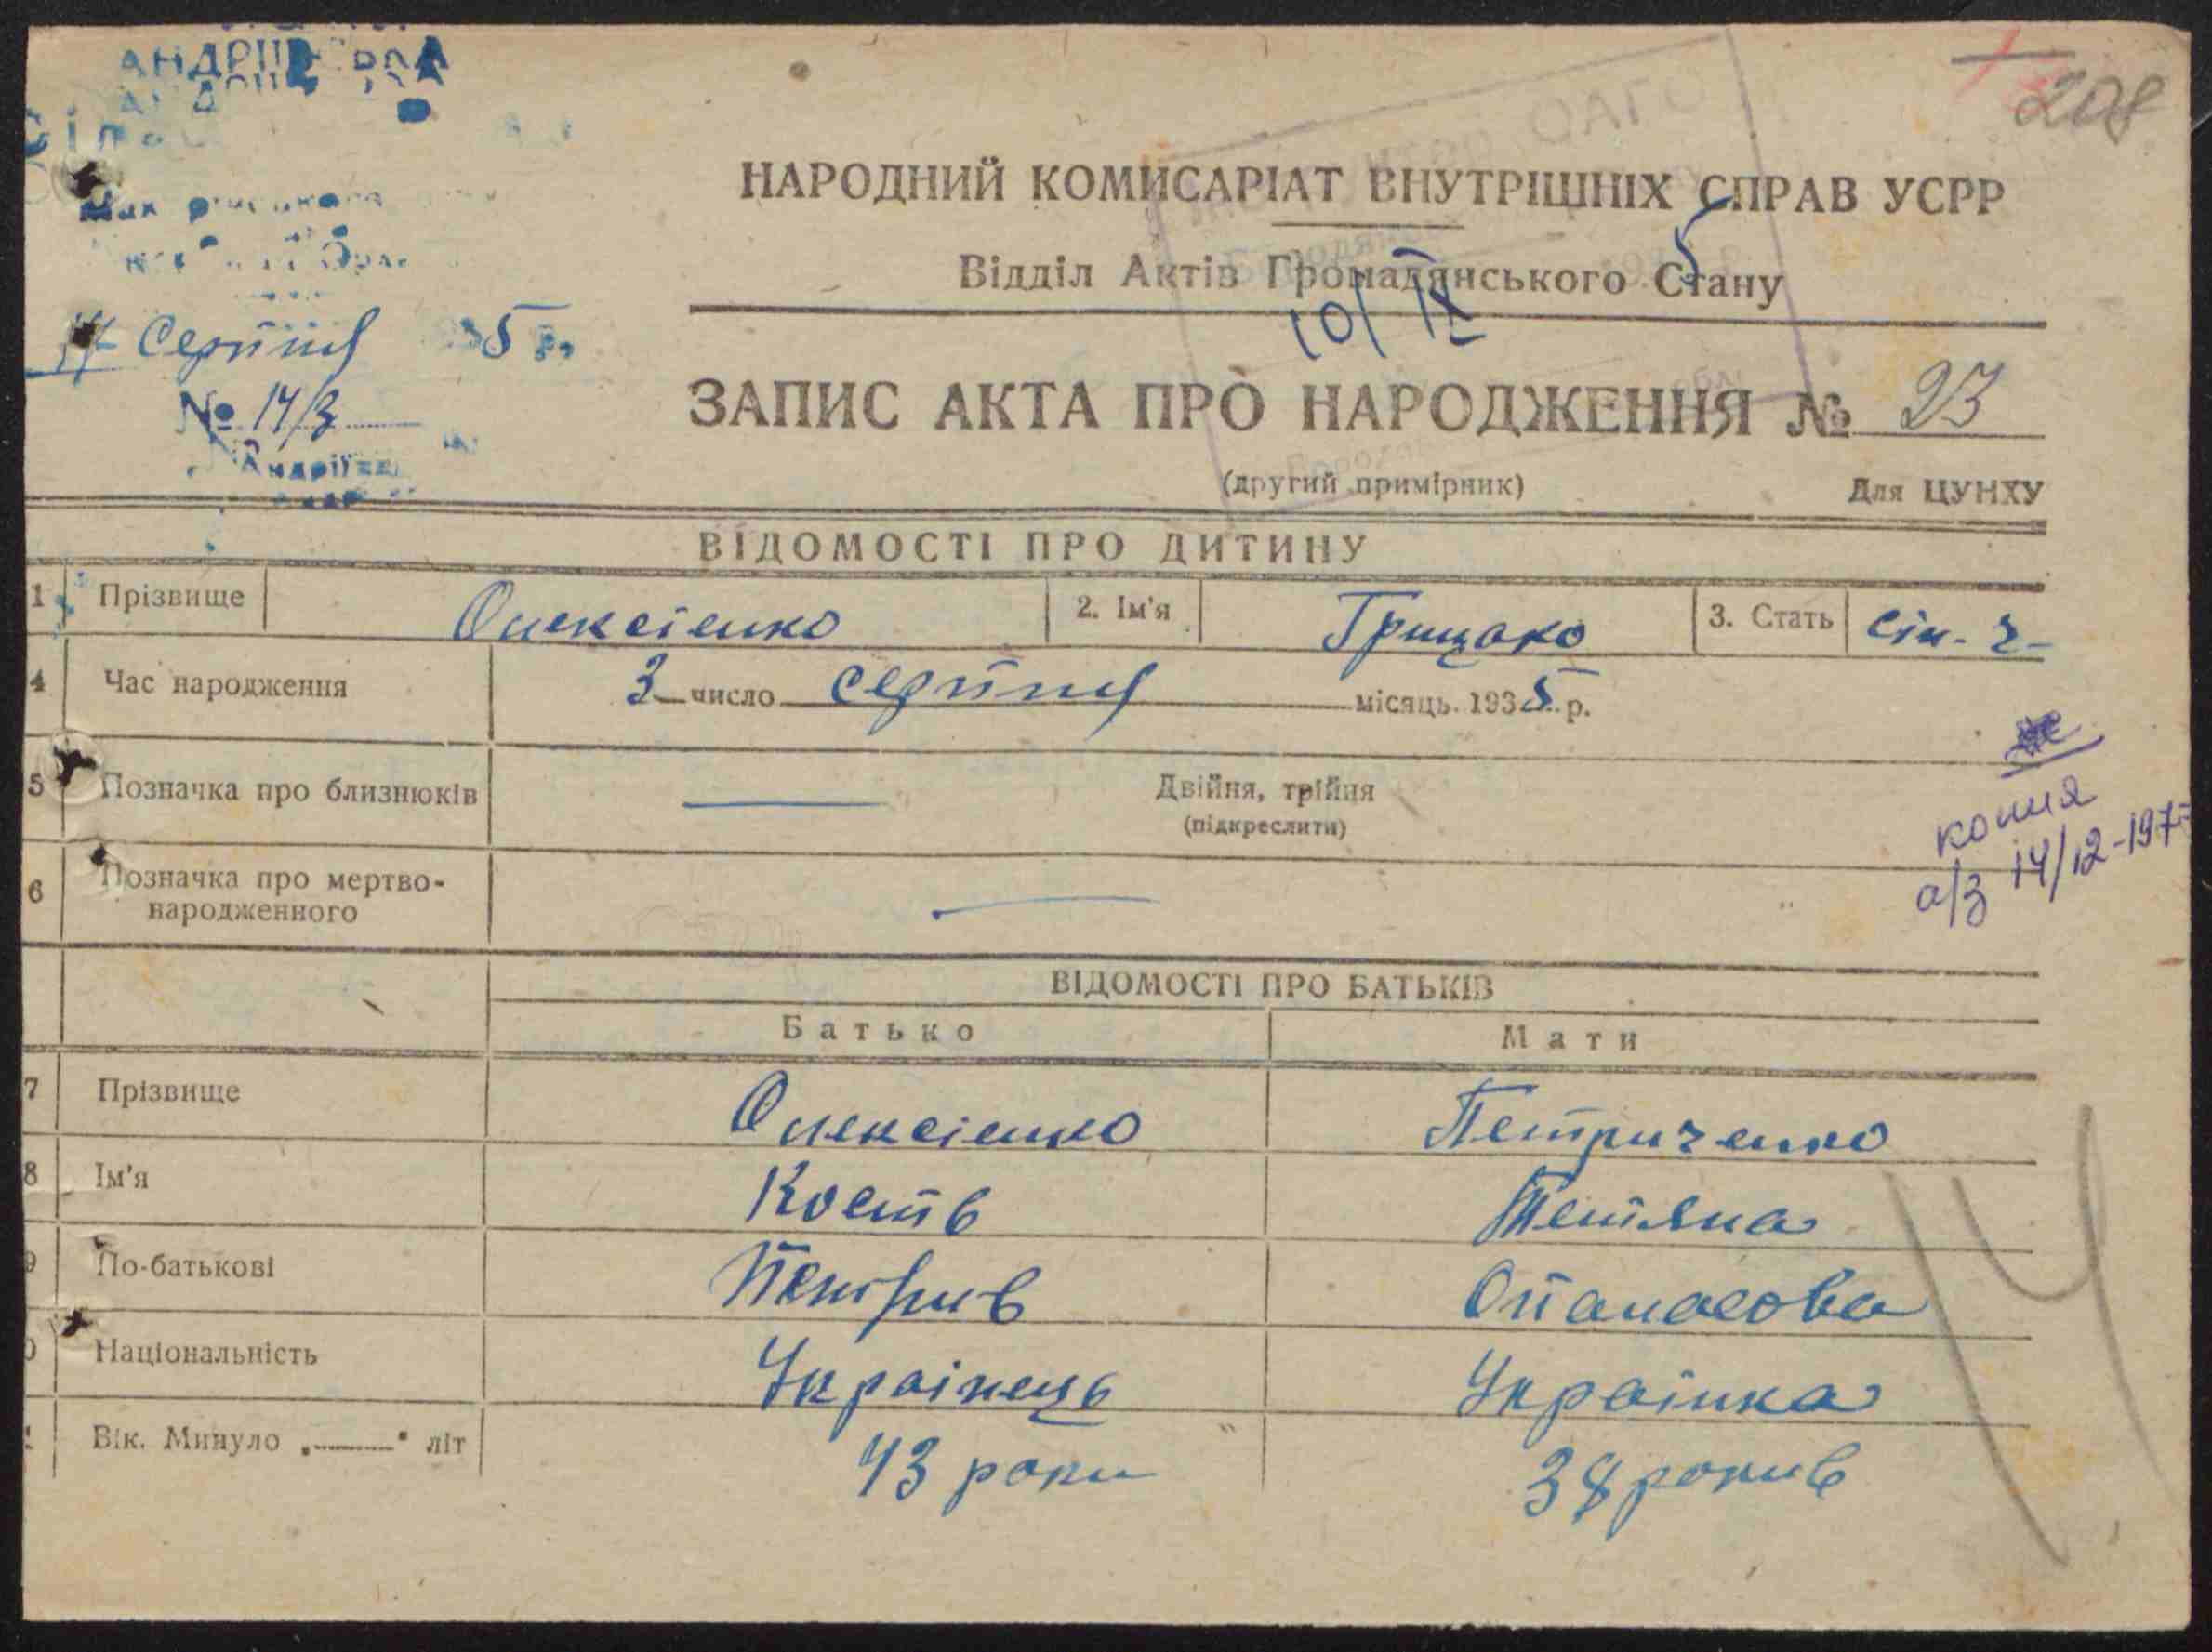 208
НАРОДНИЙ КОМИСАРІАТ ВНУТРІШНІХ СПРАВ УСРР
Відділ Актів Громадянського Стану
Серпня 35 р.
10/IX
№ 14/3
ЗАПИС АКТА ПРО НАРОДЖЕННЯ № 23
(другий примірник) Для ЦУНХУ
ВІДОМОСТІ ПРО ДИТИНУ
1 Прізвище Олексієнко 2. Ім'я Грицько 3. Стать сін. ч-
4 Час народження 3 число серпня місяць 1935 р.
5 Позначка про близнюків Двійня, трійня
(підкреслити)
копия
а/з 14/12-197
6 Позначка про мертво-
народженного
ВІДОМОСТІ ПРО БАТЬКІВ
Батько Мати
7 Прізвище Олексієнко Петриченко
8 Ім'я Кость Тетяна
9 По-батькові Петрив Опанасова
Національність Українець Українка
Вік. Минуло „ “ літ 43 роки 38 рокив